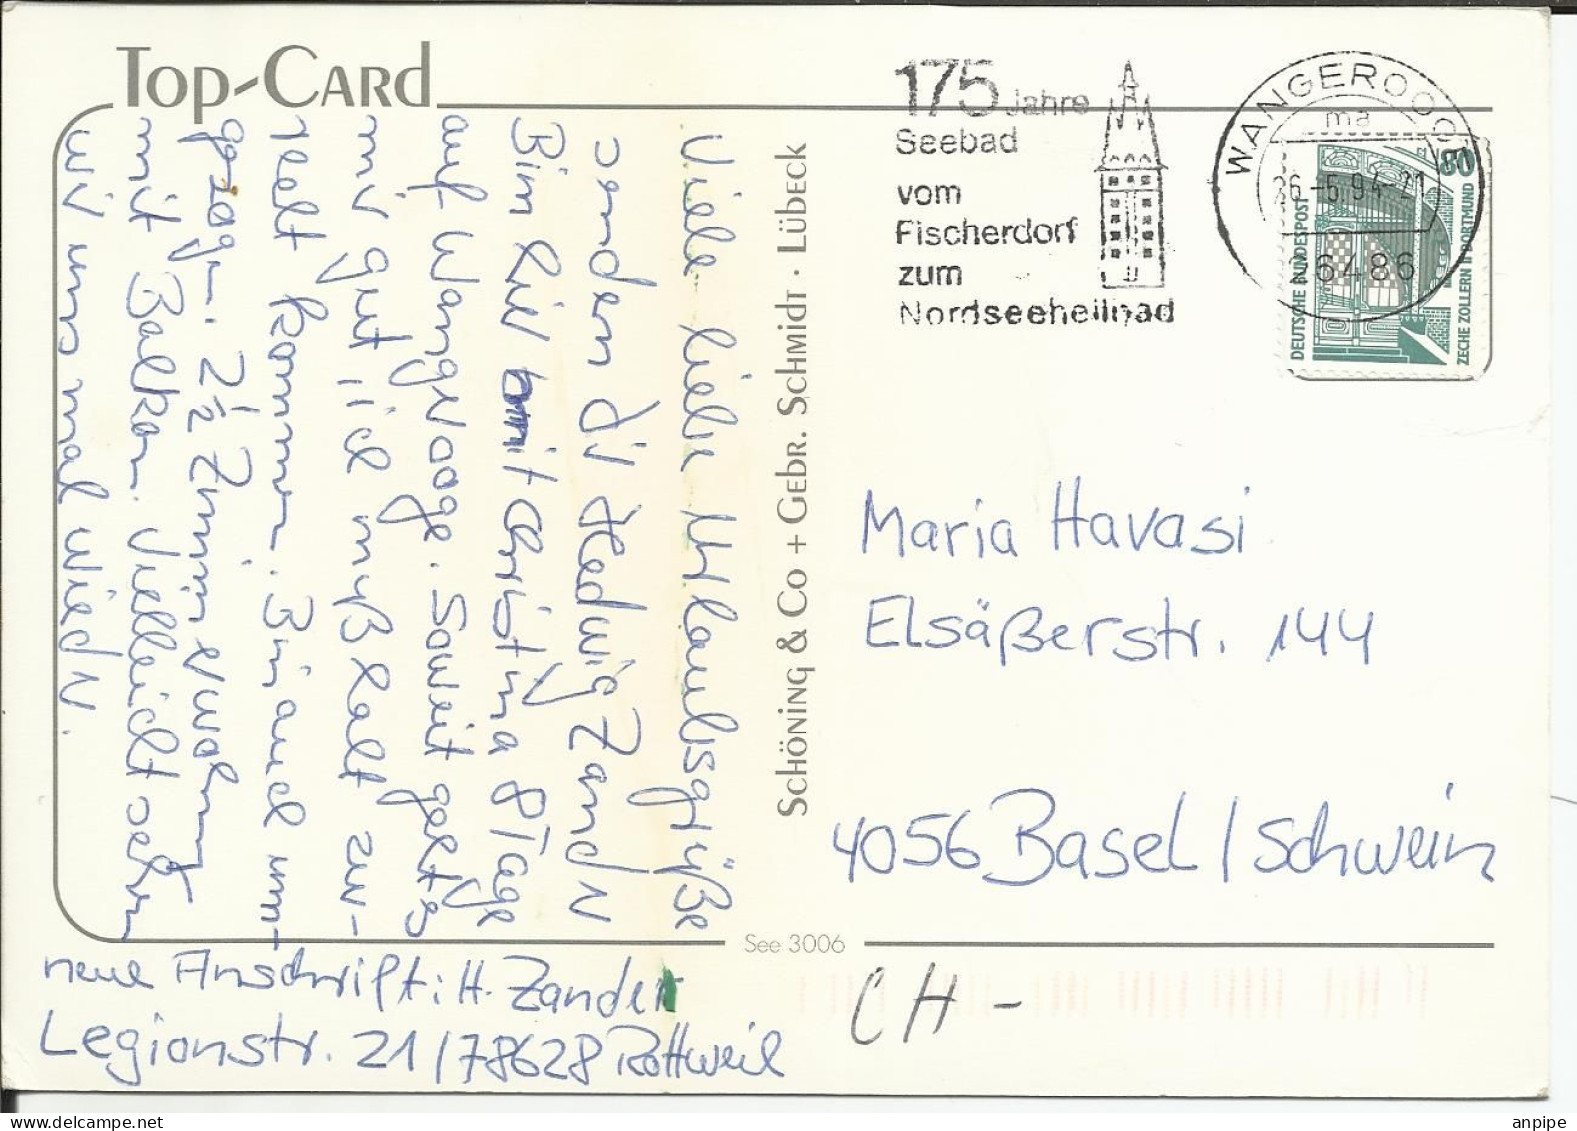 Top-Card
175 Jahre
Seebad
vom
Fischerdorf
zum
Nordseeheilbad
WANGEROOGE
ma
26.-5.94-21
26486
80
DEUTSCHE BUNDESPOST
ZECHE ZOLLERN II DORTMUND
Viele liebe Urlaubsgrüße
senden dir Hedwig Zander
Bin hier mit Christina 8 Tage
auf Wangerooge. Soweit geht's
mir gut ich muß halt zu-
recht kommen. Bin auch um-
gezogn. 2½ Zimmerwohng
mit Balkon. Vielleicht sehn
wir uns mal wieder.
neue Anschrift: H. Zander
Legionstr. 21/78628 Rottweil
Schöning & Co + Gebr. Schmidt · Lübeck
See 3006
Maria Havasi
Elsäßerstr. 144
4056 Basel / Schweiz
CH-
anpipe